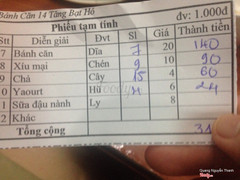 Bánh Căn 14 Tăng Bạt Hổ
Phiếu tạm tính đv: 1.000đ
Stt Diễn giải Đvt Sl Giá Thành tiền
7 Bánh căn Dĩa 7 20 140
8 Xíu mại Chén 9 10 90
9 Chả Cây 15 4 60
0 Yaourt Hũ 4 6 24
1 Sữa đậu nành Ly 8
2 Khác
Tổng cộng
Quang Nguyễn Thanh